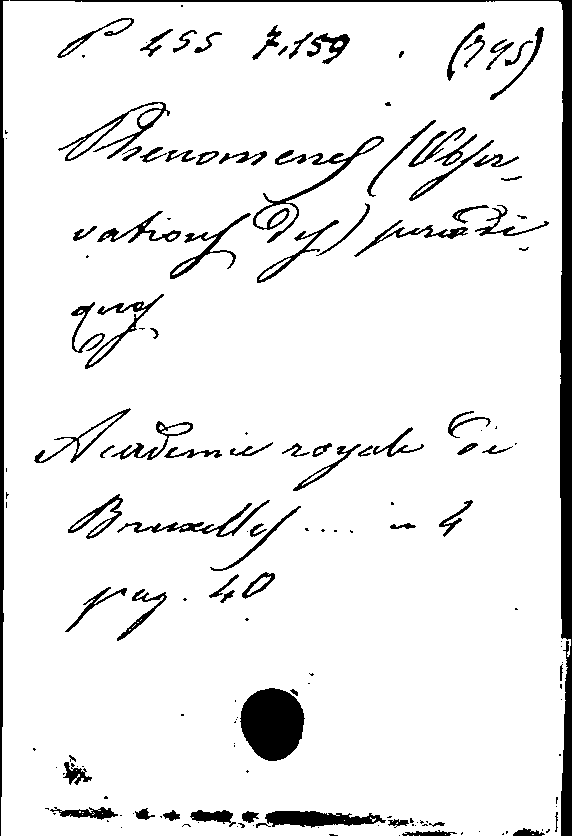 P. 455 7,159 . (795)
Phenomenes (Obser-
vations des) periodi-
ques
Academie royale de
Bruxelles .... in 4
pag. 40